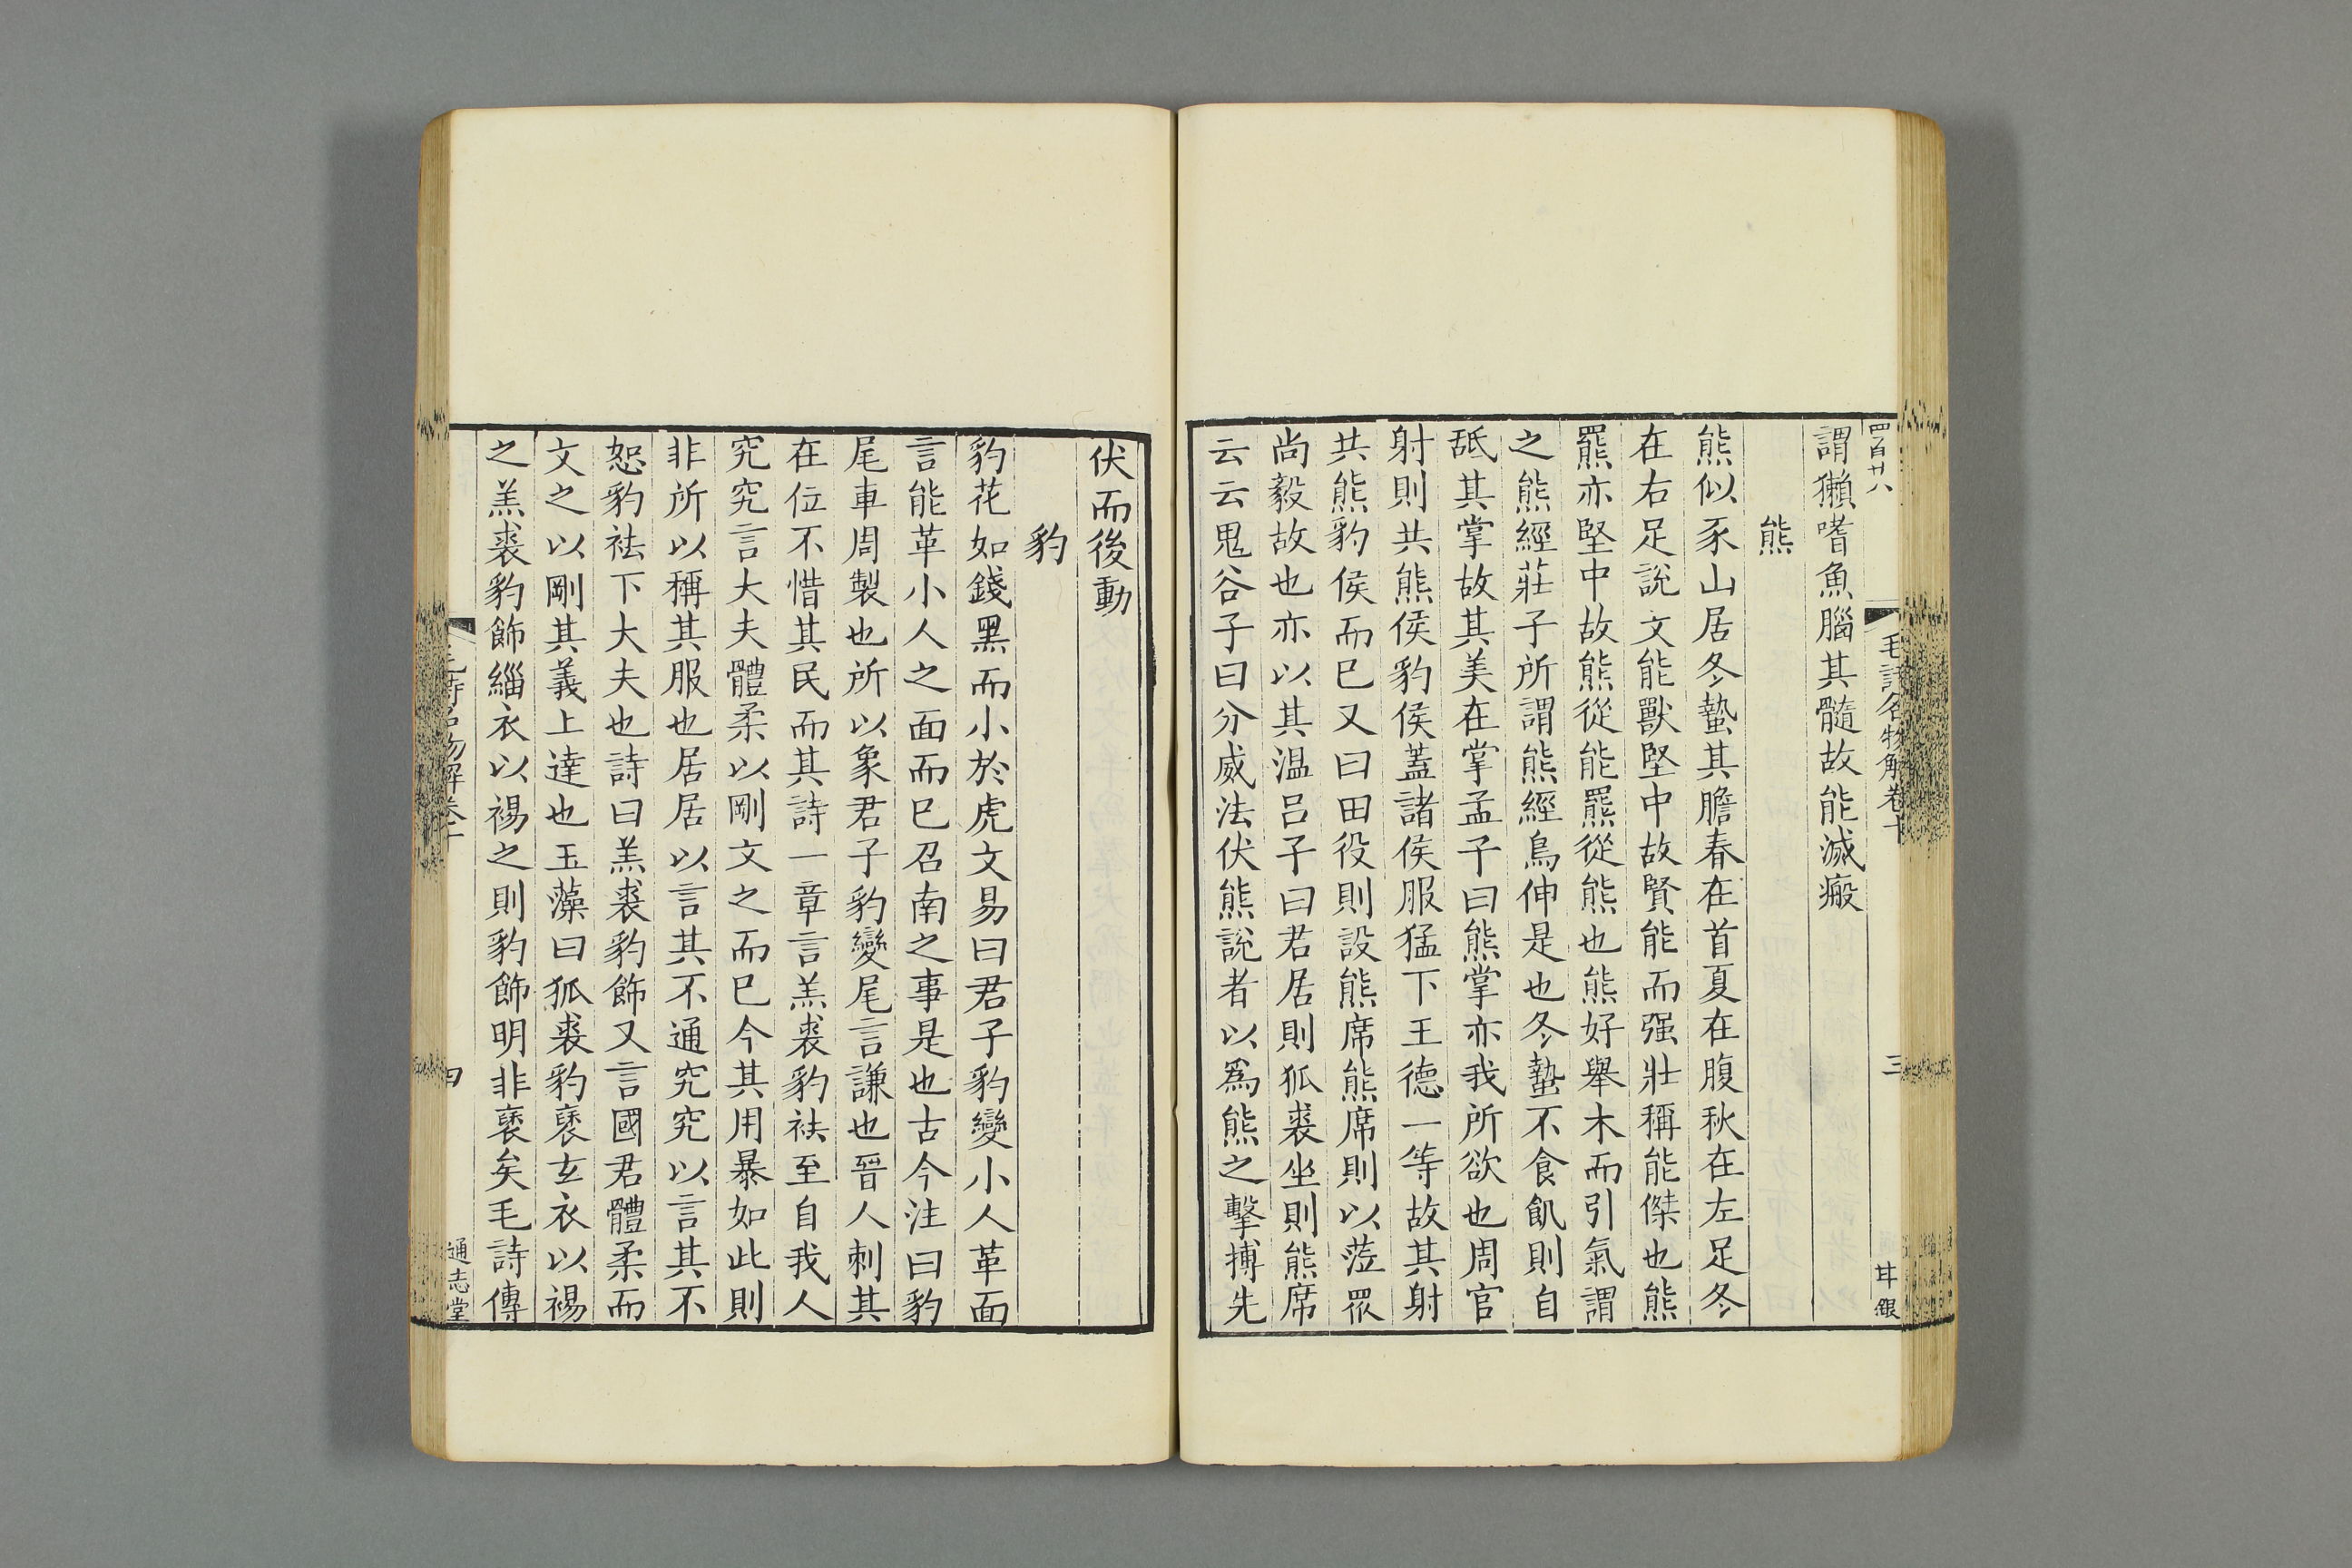 四百廿八
毛詩名物解卷十
三
甘銀
謂獺嗜魚腦其髓故能滅瘢
熊
熊似豕山居冬蟄其膽春在首夏在腹秋在左足冬
在右足說文能獸堅中故賢能而强壯稱能傑也熊
羆亦堅中故熊從能羆從熊也熊好舉木而引氣謂
之熊經莊子所謂熊經鳥伸是也冬蟄不食飢則自
舐其掌故其美在掌孟子曰熊掌亦我所欲也周官
射則共熊侯豹侯蓋諸侯服猛下王德一等故其射
共熊豹侯而已又曰田役則設熊席熊席則以蒞眾
尚毅故也亦以其温呂子曰君居則狐裘坐則熊席
云云鬼谷子曰分威法伏熊說者以爲熊之擊搏先
伏而後動
豹
豹花如錢黑而小於虎文易曰君子豹變小人革面
言能革小人之面而已召南之事是也古今注曰豹
尾車周製也所以象君子豹變尾言謙也晉人刺其
在位不惜其民而其詩一章言羔裘豹袪至自我人
究究言大夫體柔以剛文之而已今其用暴如此則
非所以稱其服也居居以言其不通究究以言其不
恕豹袪下大夫也詩曰羔裘豹飾又言國君體柔而
文之以剛其義上達也玉藻曰狐裘豹褎玄衣以裼
之羔裘豹飾緇衣以裼之則豹飾明非褎矣毛詩傳
毛詩名物解卷十
四
通志堂